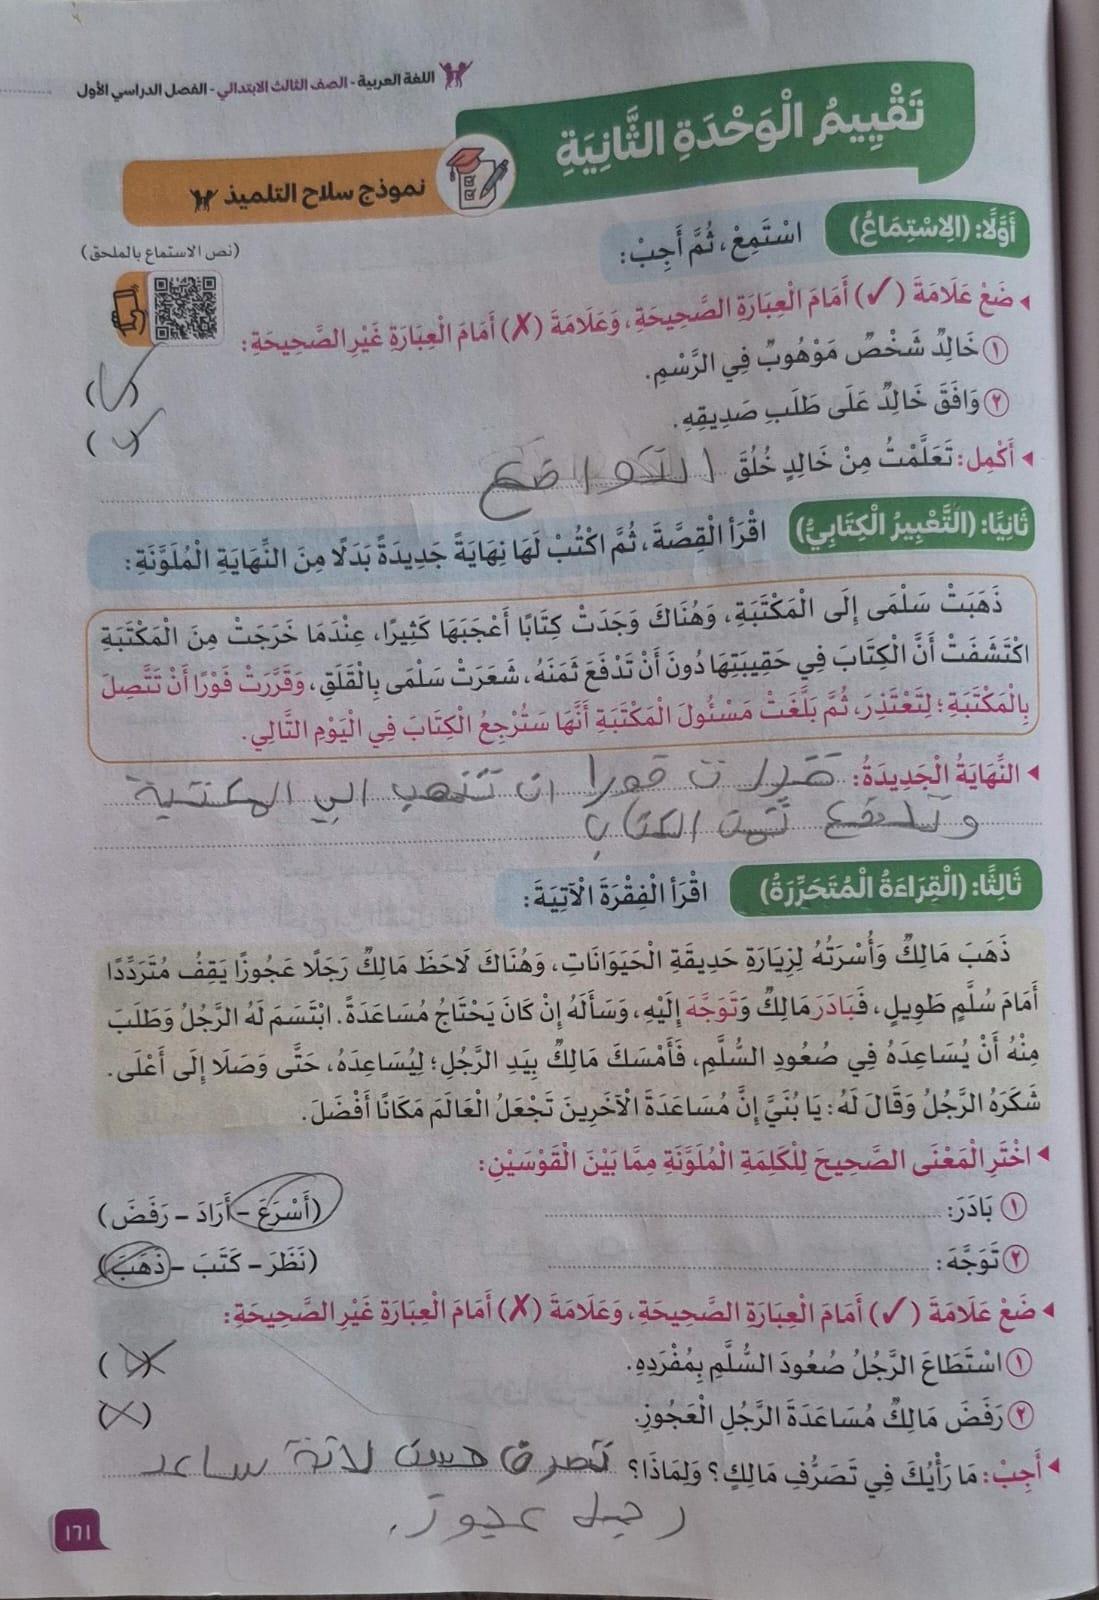 اللغة العربية - الصف الثالث الابتدائي - الفصل الدراسي الأول
تَقْيِيمُ الْوَحْدَةِ الثَّانِيَةِ
نموذج سلاح التلميذ
أَوَّلًا: (الِاسْتِمَاعُ) اسْتَمِعْ، ثُمَّ أَجِبْ:
(نص الاستماع بالملحق)
ضَعْ عَلَامَةَ (✓) أَمَامَ الْعِبَارَةِ الصَّحِيحَةِ، وَعَلَامَةَ (✗) أَمَامَ الْعِبَارَةِ غَيْرِ الصَّحِيحَةِ:
١ خَالِدٌ شَخْصٌ مَوْهُوبٌ فِي الرَّسْمِ. (✓)
٢ وَافَقَ خَالِدٌ عَلَى طَلَبِ صَدِيقِهِ. (✓)
أَكْمِل: تَعَلَّمْتُ مِنْ خَالِدٍ خُلُقَ التواضع
ثَانِيًا: (التَّعْبِيرُ الْكِتَابِيُّ) اقْرَأ الْقِصَّةَ، ثُمَّ اكْتُبْ لَهَا نِهَايَةً جَدِيدَةً بَدَلًا مِنَ النِّهَايَةِ الْمُلَوَّنَةِ:
ذَهَبَتْ سَلْمَى إِلَى الْمَكْتَبَةِ، وَهُنَاكَ وَجَدَتْ كِتَابًا أَعْجَبَهَا كَثِيرًا، عِنْدَمَا خَرَجَتْ مِنَ الْمَكْتَبَةِ
اكْتَشَفَتْ أَنَّ الْكِتَابَ فِي حَقِيبَتِهَا دُونَ أَنْ تَدْفَعَ ثَمَنَهُ، شَعَرَتْ سَلْمَى بِالْقَلَقِ، وَقَرَّرَتْ فَوْرًا أَنْ تَتَّصِلَ
بِالْمَكْتَبَةِ؛ لِتَعْتَذِرَ، ثُمَّ بَلَّغَتْ مَسْئُولَ الْمَكْتَبَةِ أَنَّهَا سَتُرْجِعُ الْكِتَابَ فِي الْيَوْمِ التَّالِي.
النِّهَايَةُ الْجَدِيدَةُ: قررت فورا ان تذهب الي المكتبة
وتدفع ثمن الكتاب
ثَالِثًا: (الْقِرَاءَةُ الْمُتَحَرِّرَةُ) اقْرَأ الْفِقْرَةَ الْآتِيَةَ:
ذَهَبَ مَالِكٌ وَأُسْرَتُهُ لِزِيَارَةِ حَدِيقَةِ الْحَيَوَانَاتِ، وَهُنَاكَ لَاحَظَ مَالِكٌ رَجُلًا عَجُوزًا يَقِفُ مُتَرَدِّدًا
أَمَامَ سُلَّمٍ طَوِيلٍ، فَبَادَرَ مَالِكٌ وَتَوَجَّهَ إِلَيْهِ، وَسَأَلَهُ إِنْ كَانَ يَحْتَاجُ مُسَاعَدَةً. ابْتَسَمَ لَهُ الرَّجُلُ وَطَلَبَ
مِنْهُ أَنْ يُسَاعِدَهُ فِي صُعُودِ السُّلَّمِ، فَأَمْسَكَ مَالِكٌ بِيَدِ الرَّجُلِ؛ لِيُسَاعِدَهُ، حَتَّى وَصَلَا إِلَى أَعْلَى.
شَكَرَهُ الرَّجُلُ وَقَالَ لَهُ: يَا بُنَيَّ إِنَّ مُسَاعَدَةَ الْآخَرِينَ تَجْعَلُ الْعَالَمَ مَكَانًا أَفْضَلَ.
اخْتَرِ الْمَعْنَى الصَّحِيحَ لِلْكَلِمَةِ الْمُلَوَّنَةِ مِمَّا بَيْنَ الْقَوْسَيْنِ:
١ بَادَرَ: (أَسْرَعَ - أَرَادَ - رَفَضَ)
٢ تَوَجَّهَ: (نَظَرَ - كَتَبَ - ذَهَبَ)
ضَعْ عَلَامَةَ (✓) أَمَامَ الْعِبَارَةِ الصَّحِيحَةِ، وَعَلَامَةَ (✗) أَمَامَ الْعِبَارَةِ غَيْرِ الصَّحِيحَةِ:
١ اسْتَطَاعَ الرَّجُلُ صُعُودَ السُّلَّمِ بِمُفْرَدِهِ. (✗)
٢ رَفَضَ مَالِكٌ مُسَاعَدَةَ الرَّجُلِ الْعَجُوزِ. (✗)
أَجِبْ: مَا رَأْيُكَ فِي تَصَرُّفِ مَالِكٍ؟ وَلِمَاذَا؟ تصرف حسن لانة ساعد
رجل عجوز.
١٦١